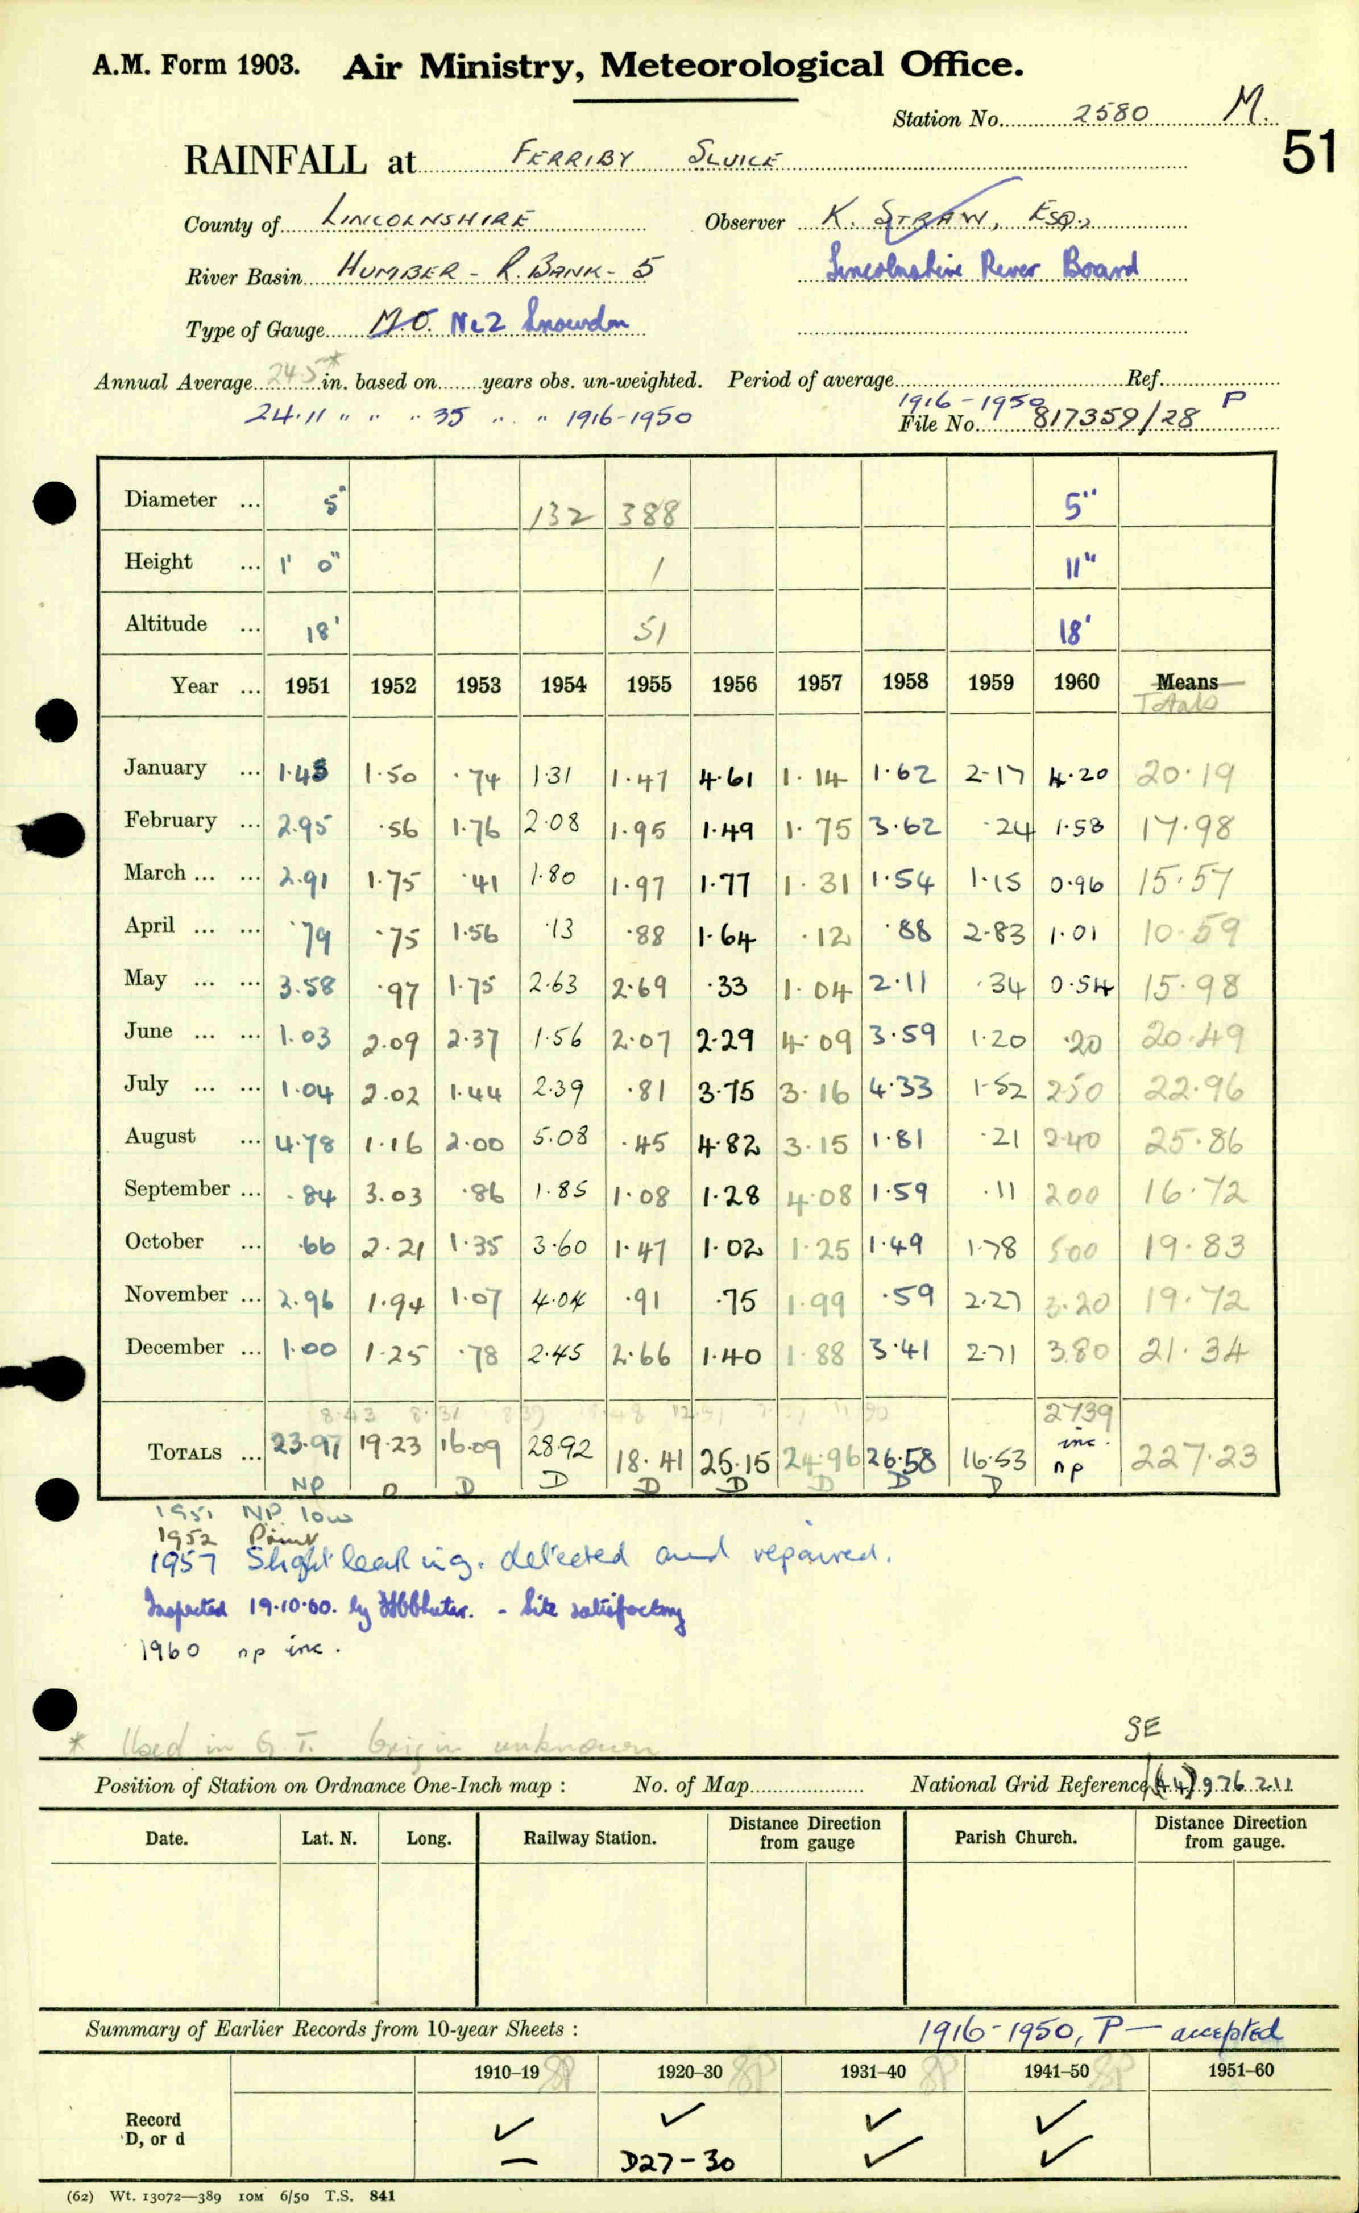 A.M. Form 1903. Air Ministry, Meteorological Office.
Station No. 2580 M.
51
RAINFALL at FERRIBY SLUICE
County of LINCOLNSHIRE Observer K. STRAW, ESQ.,
River Basin HUMBER - R. BANK - 5 Lincolnshire River Board
Type of Gauge M.O. Nc2 Snowdon
Annual Average 24.5* in. based on years obs. un-weighted. Period of average 1916-1950 Ref. P
24.11 " " " 35 " " 1916-1950 File No. 817359/28
Diameter ... 5" 132 388 5"
Height ... 1' 0" 1 11"
Altitude ... 18' 51 18'
Year ... 1951 1952 1953 1954 1955 1956 1957 1958 1959 1960 Means
Totals
January ... 1.43 1.50 .74 1.31 1.47 4.61 1.14 1.62 2.17 4.20 20.19
February ... 2.95 .56 1.76 2.08 1.95 1.49 1.75 3.62 .24 1.58 17.98
March ... ... 2.91 1.75 .41 1.80 1.97 1.77 1.31 1.54 1.15 0.96 15.57
April ... ... .79 .75 1.56 .13 .88 1.64 .12 .88 2.83 1.01 10.59
May ... ... 3.58 .97 1.75 2.63 2.69 .33 1.04 2.11 .34 0.54 15.98
June ... ... 1.03 2.09 2.37 1.56 2.07 2.29 4.09 3.59 1.20 .20 20.49
July ... ... 1.04 2.02 1.44 2.39 .81 3.75 3.16 4.33 1.52 250 22.96
August ... 4.78 1.16 2.00 5.08 .45 4.82 3.15 1.81 .21 2.40 25.86
September ... .84 3.03 .86 1.85 1.08 1.28 4.08 1.59 .11 200 16.72
October ... .66 2.21 1.35 3.60 1.47 1.02 1.25 1.49 1.78 500 19.83
November ... 2.96 1.94 1.07 4.04 .91 .75 1.99 .59 2.27 3.20 19.72
December ... 1.00 1.25 .78 2.45 2.66 1.40 1.88 3.41 2.71 3.80 21.34
8.43 8.31 2739
TOTALS ... 23.97 19.23 16.09 28.92 18.41 25.15 24.96 26.58 16.53 inc. np 227.23
NP D D D D D D D D
1951 NP low
1952
1957 Slight leaking. detected and repaired.
Inspected 19.10.60. by - Site satisfactory
1960 np inc.
* Used in G.T. Origin unknown
SE
Position of Station on Ordnance One-Inch map : No. of Map National Grid Reference (44) 976 211
Date. Lat. N. Long. Railway Station. Distance from Direction gauge Parish Church. Distance from Direction gauge.
Summary of Earlier Records from 10-year Sheets : 1916-1950, P — accepted
1910–19 1920–30 1931–40 1941–50 1951–60
Record ✓ ✓ ✓ ✓
D, or d — D27-30 ✓ ✓
(62) Wt. 13072—389 10M 6/50 T.S. 841